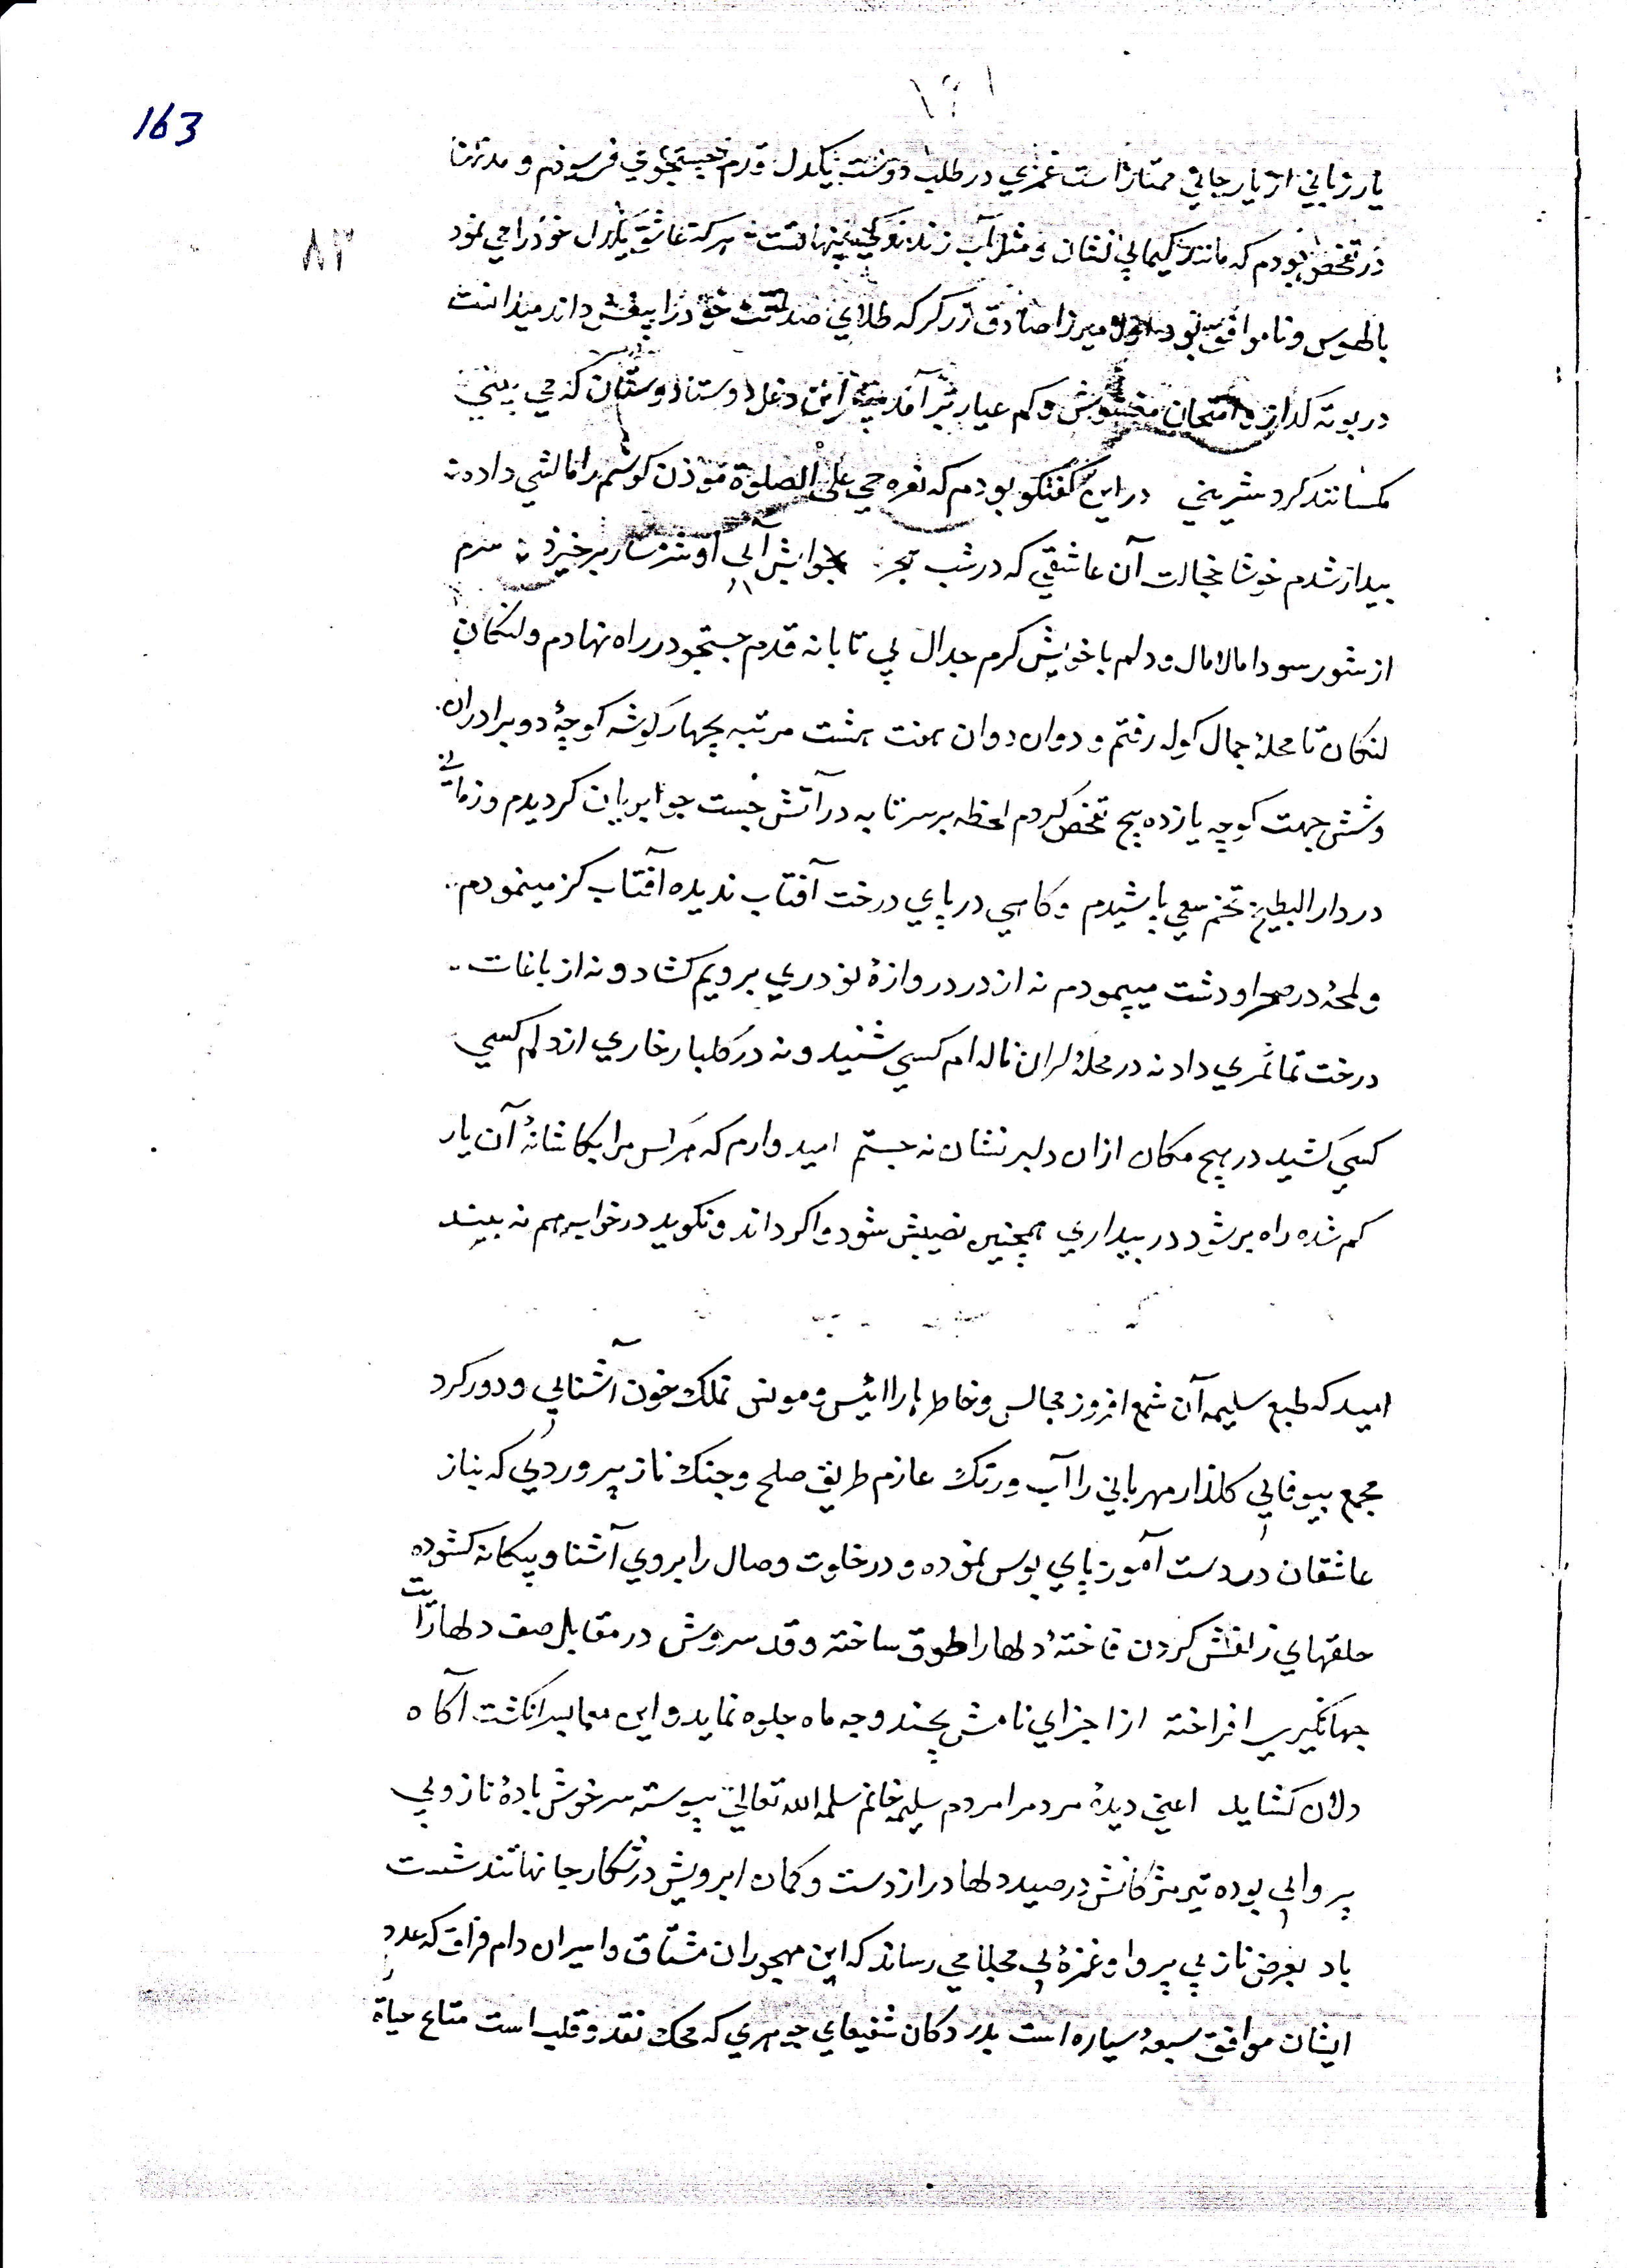 163
۸۳
یار زبانی از یار جانی ممتاز است عمری در طلب دوست یکدل قدم جستجوی فرسودم و مدتها
در تفحص بودم که مانند کیمیا بی نشان و مثل آب زندگی پنهانست هر که عاشق یکدل خود را می نمود
بالهوس و ناموافق بود میرزا صادق زرگر که طلای صداقت خود را بیغش داند میدانست
در بوته کداز امتحان مغشوش و کم عیار بر آمد این دغل دوستان که می بینی
مکسانند کرد شیرینی در این کفتکو بودم که نعره حی علی الصلوة موذن کوشم را مالشی داده
بیدار شدم خوشا خجالت آن عاشقی که در شب بخوابش آیی او شرمسار برخیزد سرم
از شور سودا مالامال و دلم با خویش کرم جدال بی تابانه قدم جستجو در راه نهادم و لنکان
لنکان تا محلهٔ جمال کوله رفتم و دوان دوان هفت هشت مرتبه بچهار کوشه کوچهٔ دو برادران
و شش جهت کوچه یازده پیچ تفحص کردم لحظه بر سر تابه در آتش جست جو بریان کردیدم و زمانی
در دار البطیخ تخم سعی پاشیدم و کاهی در پای درخت آفتاب ندیده آفتاب کز مینمودم
و لمحهٔ در صحرا و دشت میپیمودم نه از در دروازهٔ نو دری برویم کشاد و نه از باغات
درخت تمنا ثمری داد نه در محلهٔ لران ناله ام کسی شنید و نه در کلبار خاری از دلم کسی
کسی کشید در هیچ مکان ازان دلبر نشان نه جستم امیدوارم که هر کس مرا بکاشانهٔ آن یار
کم شده راه بر شود در بیداری همچنین نصیبش شود و اکر داند و نکوید در خواب هم نه بیند
امید که طبع سلیمه آن شمع افروز مجالس و خاطرها را انیس و مونس نمک خون آشنایی و دور کرد
مجمع بیوفایی کلذار مهربانی را آب و رنک عازم طریق صلح و جنک ناز پروردی که بناز
عاشقان در دست آموز پای بوس نموده و در خلوت وصال را بروی آشنا و بیکانه کشوده
حلقهای زلفش کردن فاختهٔ دلها را طوق ساخته و قد سروش در مقابل صف دلها رایت
جهانکیری افراخته از اجزای نامش بچند وجه ماه جلوه نماید و این معما بسر انکشت آکاه
دلان کشاید اعنی دیدهٔ مردم را مردم سلیمه خانم سلمه الله تعالی پیوسته سرخوش بادهٔ ناز و بی
پروایی بوده تیر مژکانش در صید دلها دراز دست و کمان ابرویش در شکار جانها تند شست
باد بعرض ناز بی پروا و غمزهٔ بی محابا می رساند که این مهجوران مشتاق و اسیران دام فراق که عدد
ایشان موافق سبعهٔ سیاره است بدر دکان شفیعای جوهری که محک نقد و قلب است متاع حیاة